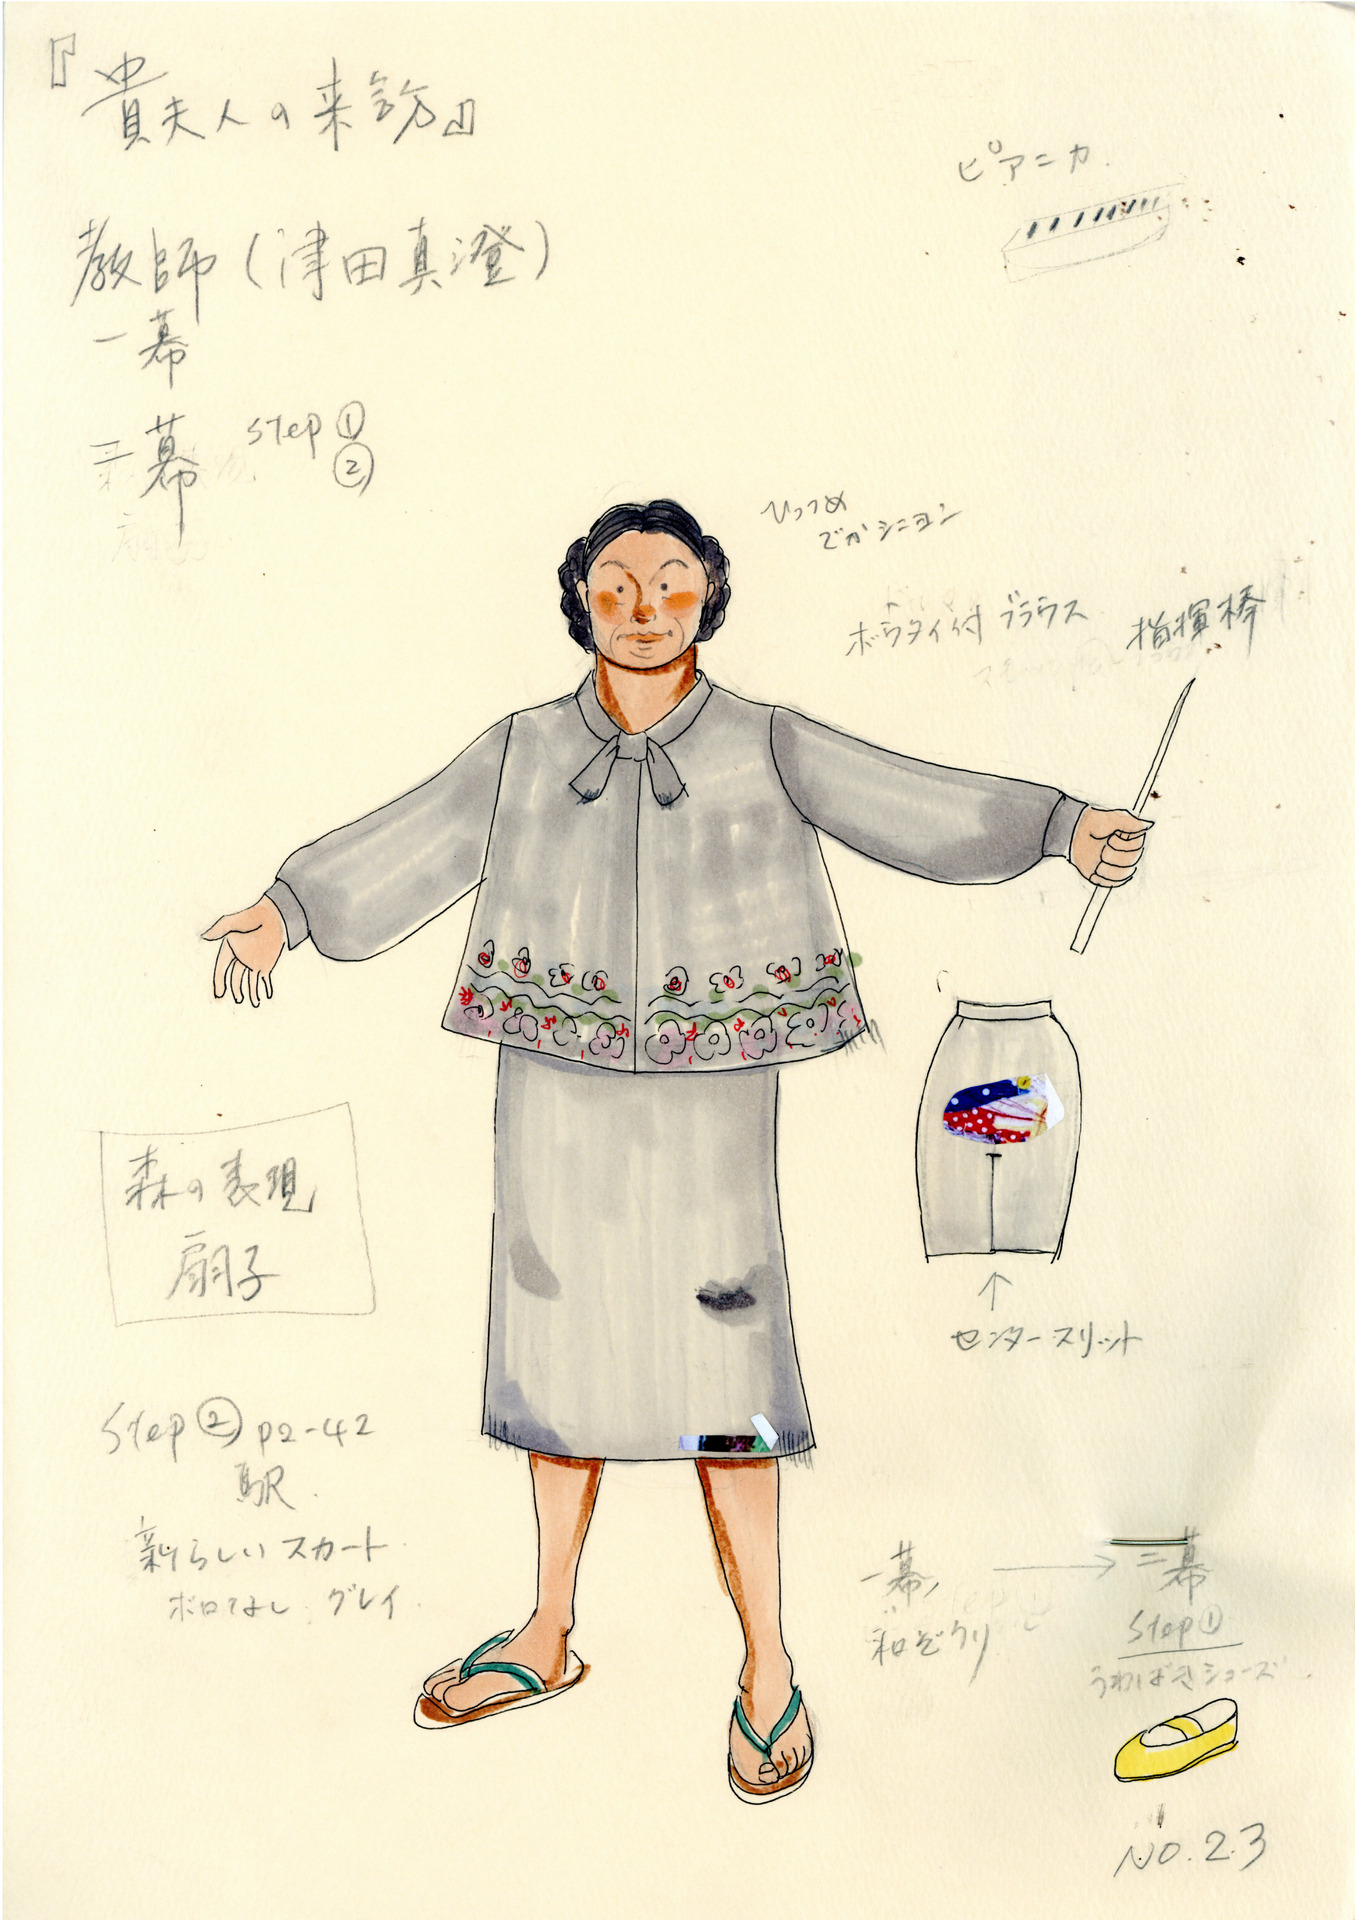 『貴夫人の来訪』
ピアニカ
教師（津田真澄）
一幕
二幕 step ①
②
ひっつめ
でかシニヨン
ボウタイ付ブラウス
指揮棒
森の表現
扇子
センタースリット
Step ② P2-42
駅
新らしいスカート
ボロなし グレイ
一幕 → 二幕
和ぞうり
Step ①
うわばきシューズ
NO.23